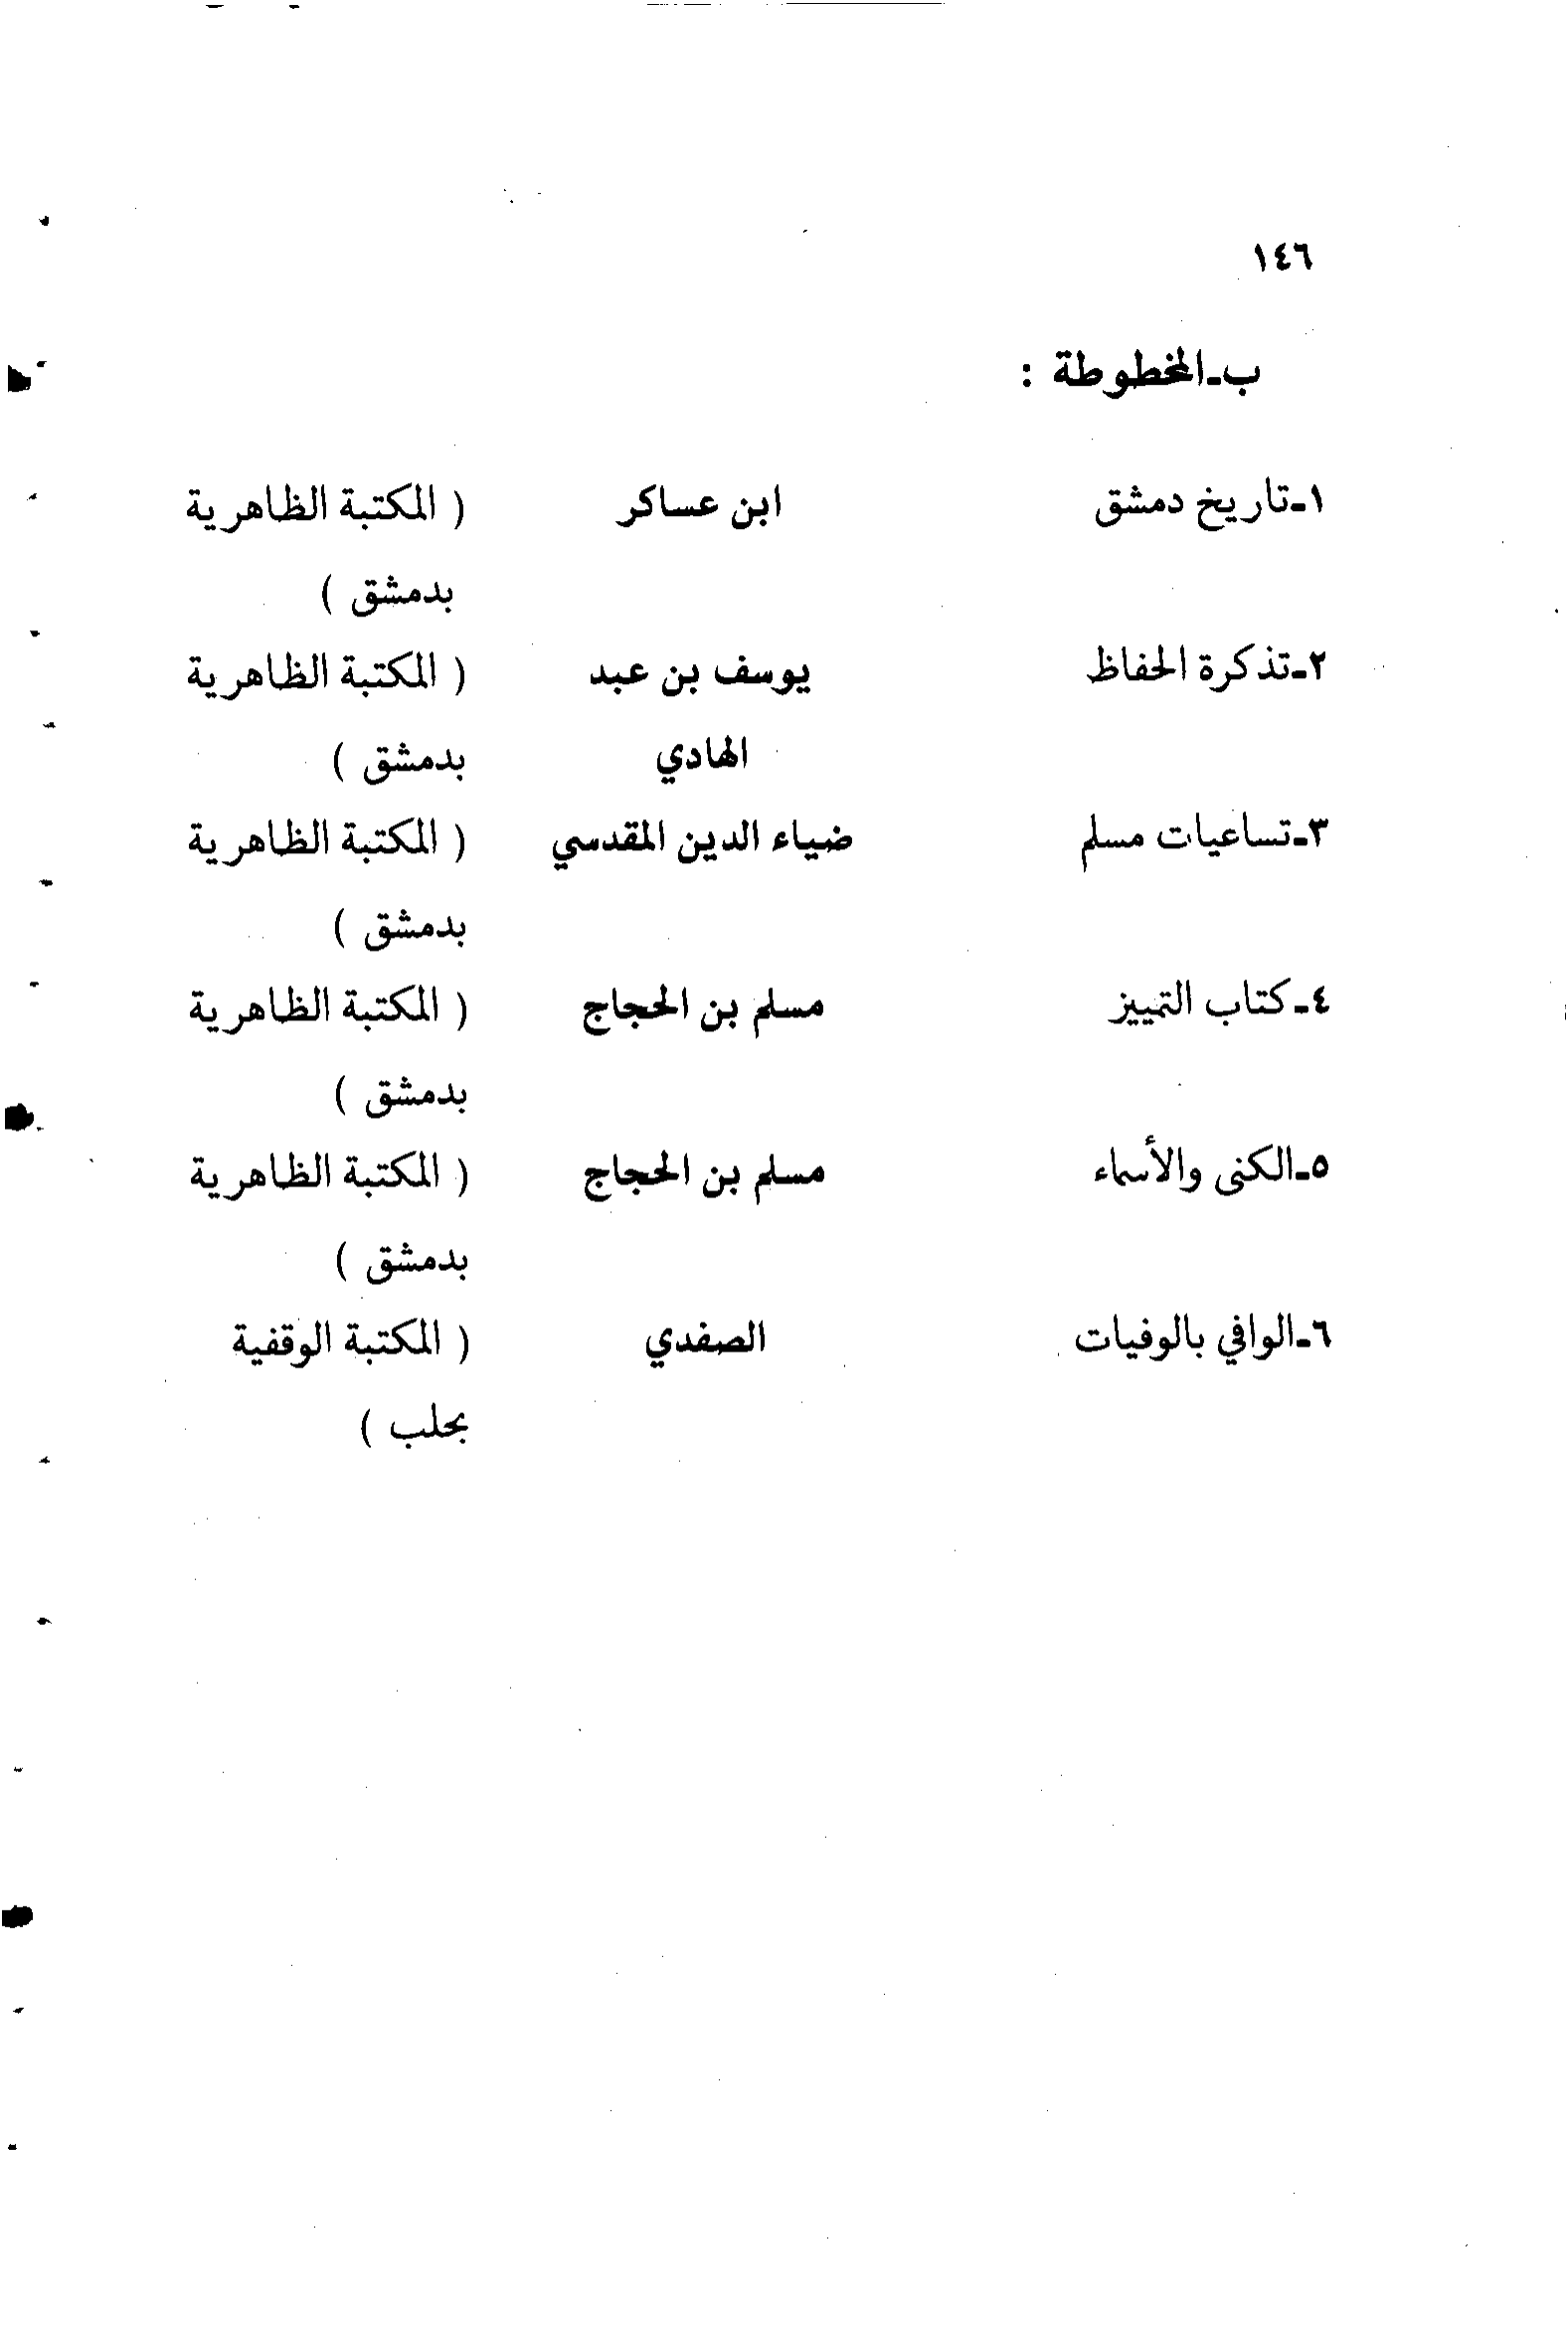 ١٤٦
ب-المخطوطة :
١-تاريخ دمشق ابن عساكر ( المكتبة الظاهرية
بدمشق )
٢-تذكرة الحفاظ يوسف بن عبد ( المكتبة الظاهرية
الهادي بدمشق )
٣-تساعيات مسلم ضياء الدين المقدسي ( المكتبة الظاهرية
بدمشق )
٤-كتاب التمييز مسلم بن الحجاج ( المكتبة الظاهرية
بدمشق )
٥-الكنى والأسماء مسلم بن الحجاج ( المكتبة الظاهرية
بدمشق )
٦-الوافي بالوفيات الصفدي ( المكتبة الوقفية
بحلب )